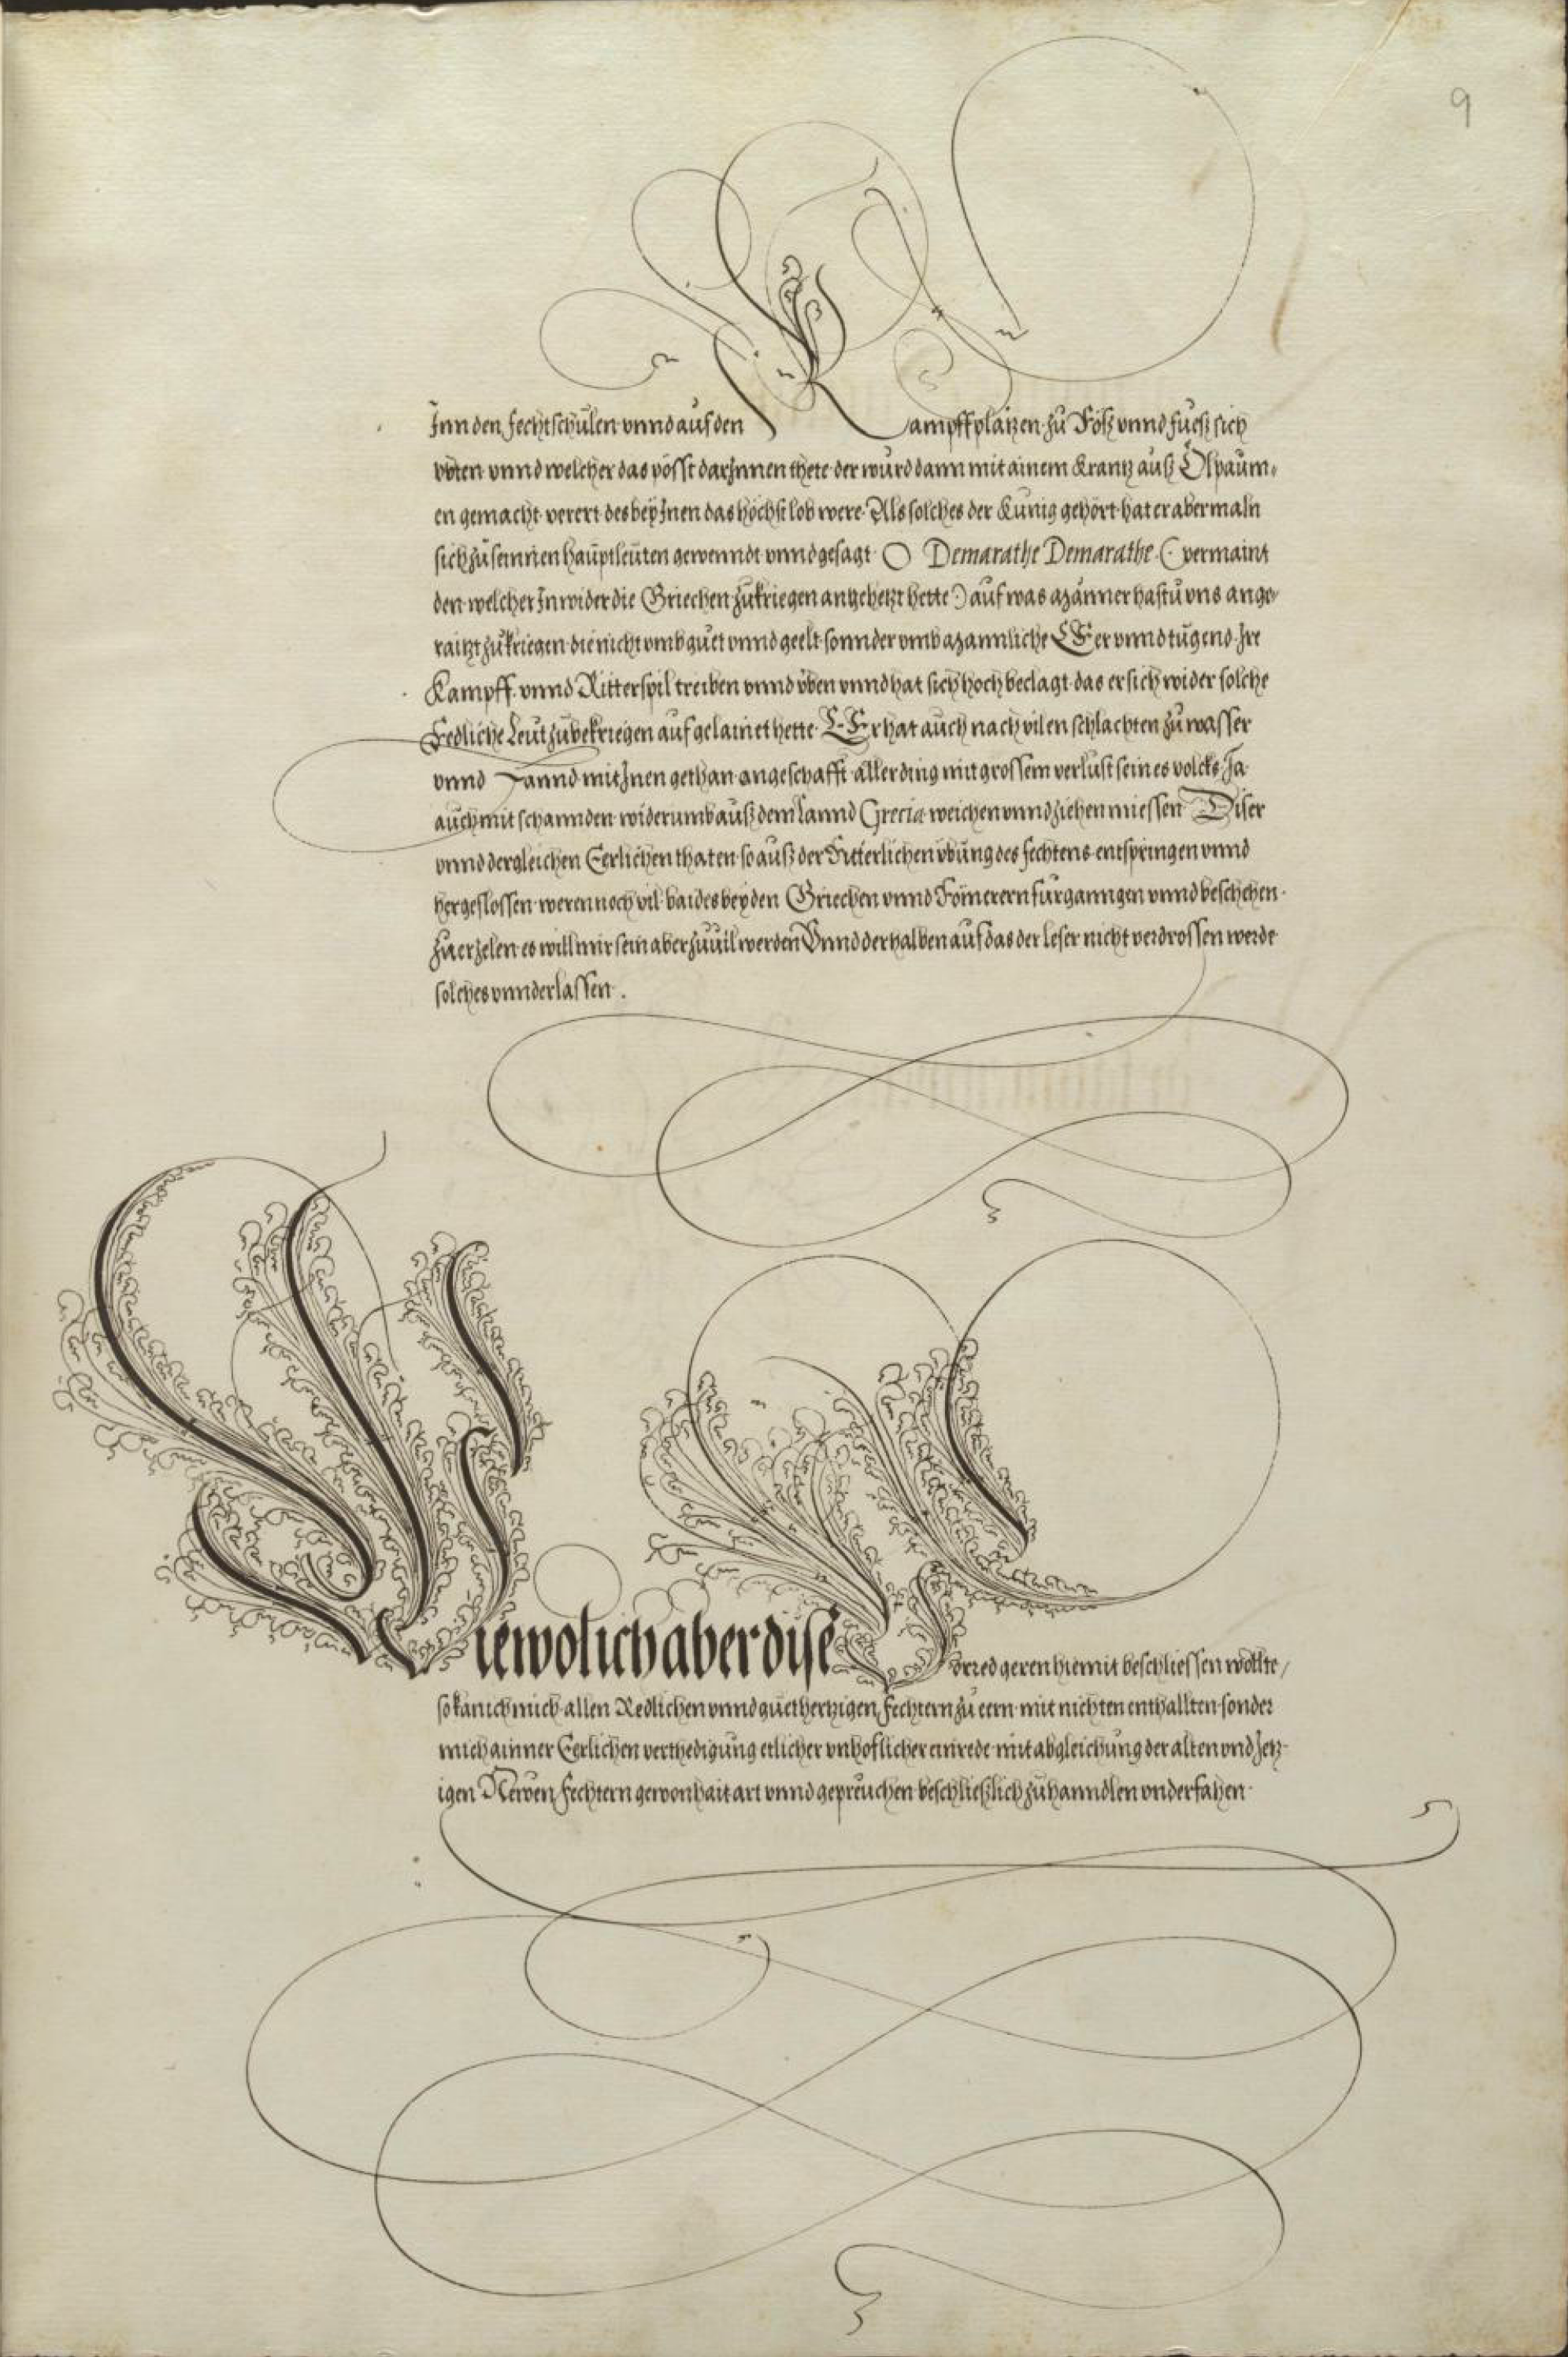 9
Inn den fechtschůlen vnnd auf den Kampffplätzen zů Roß vnnd fueß sich
vbten vnnd welcher das pösst darInnen thete der wurd dann mit ainem Krantz auß Ölpaum,
en gemacht verert des beÿ Inen das höchst lob were. Als solches der Künig gehört hat er abermaln
sich zů seinnen hauptleüten gewenndt vnnd gesagt O Demarathe Demarathe (: vermaint
den welcher In wider die Griechen zů kriegen angehetzt hette :) auf was Männer hastů vns ange,
raitzt zů kriegen die nicht vmb guet vnnd geelt sonnder vmb Mannliche EEer vnnd tugend Ire
Kampff vnnd Ritterspil treiben vnnd vben vnnd hat sich hoch beclagt das er sich wider solche
Redliche Leut zů bekriegen auf gelainet hette. EEr hat auch nach vilen schlachten zů wasser
vnnd Lannd mit Inen gethan angeschafft allerding mit grossem verlust seines volcks Ja
auch mit schannden widerumb auß dem lannd Grecia weichen vnnd ziehen miessen Diser
vnnd dergleichen Eerlichen thaten so auß der Ritterlichen vbung des fechtens entspringen vnnd
hergeflossen weren noch vil baides beÿ den Griechen vnnd Römerern fürganngen vnnd beschehen
zů erzelen es will mir sein aber zů uil werden Vnnd derhalben auf das der leser nicht verdrossen werde
solches vnnderlassen.
Wiewol ich aber dise Vorred geren hiemit beschliessen wöllte,
so kan ich mich allen Redlichen vnnd guethertzigen fechtern zů eern mit nichten enthallten sonder
mich ainner Eerlichen verthedigung etlicher vnhoflicher einrede mit abgleichung der alten vnd Jetz-
igen Newen fechtern gewonhait art vnnd gepreuchen beschließlich zů hanndlen vnderfahen